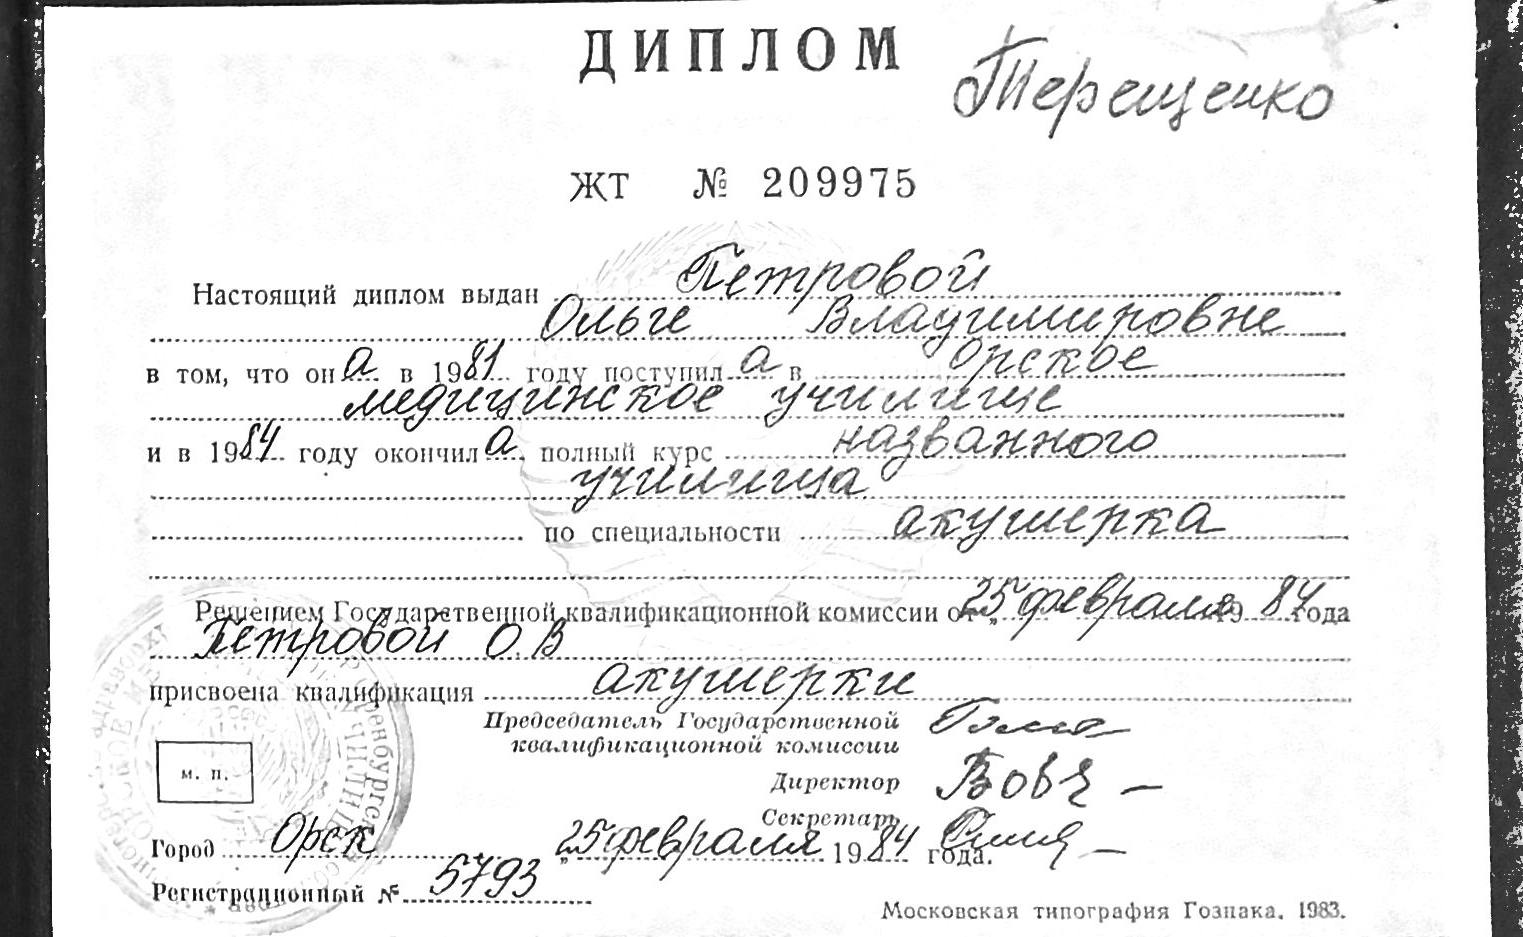 ДИПЛОМ
Терещенко
ЖТ № 209975
Настоящий диплом выдан Петровой
Ольге Владимировне
в том, что она в 1981 году поступила в Орское
медицинское училище
и в 1984 году окончила полный курс названного
училища
по специальности акушерка
Решением Государственной квалификационной комиссии от „25 февраля 1984 года
Петровой О.В
присвоена квалификация акушерки
Председатель Государственной
квалификационной комиссии
Директор
Секретарь
м. п.
Город Орск „25 февраля 1984 года.
Регистрационный № 5793
Московская типография Гознака. 1983.